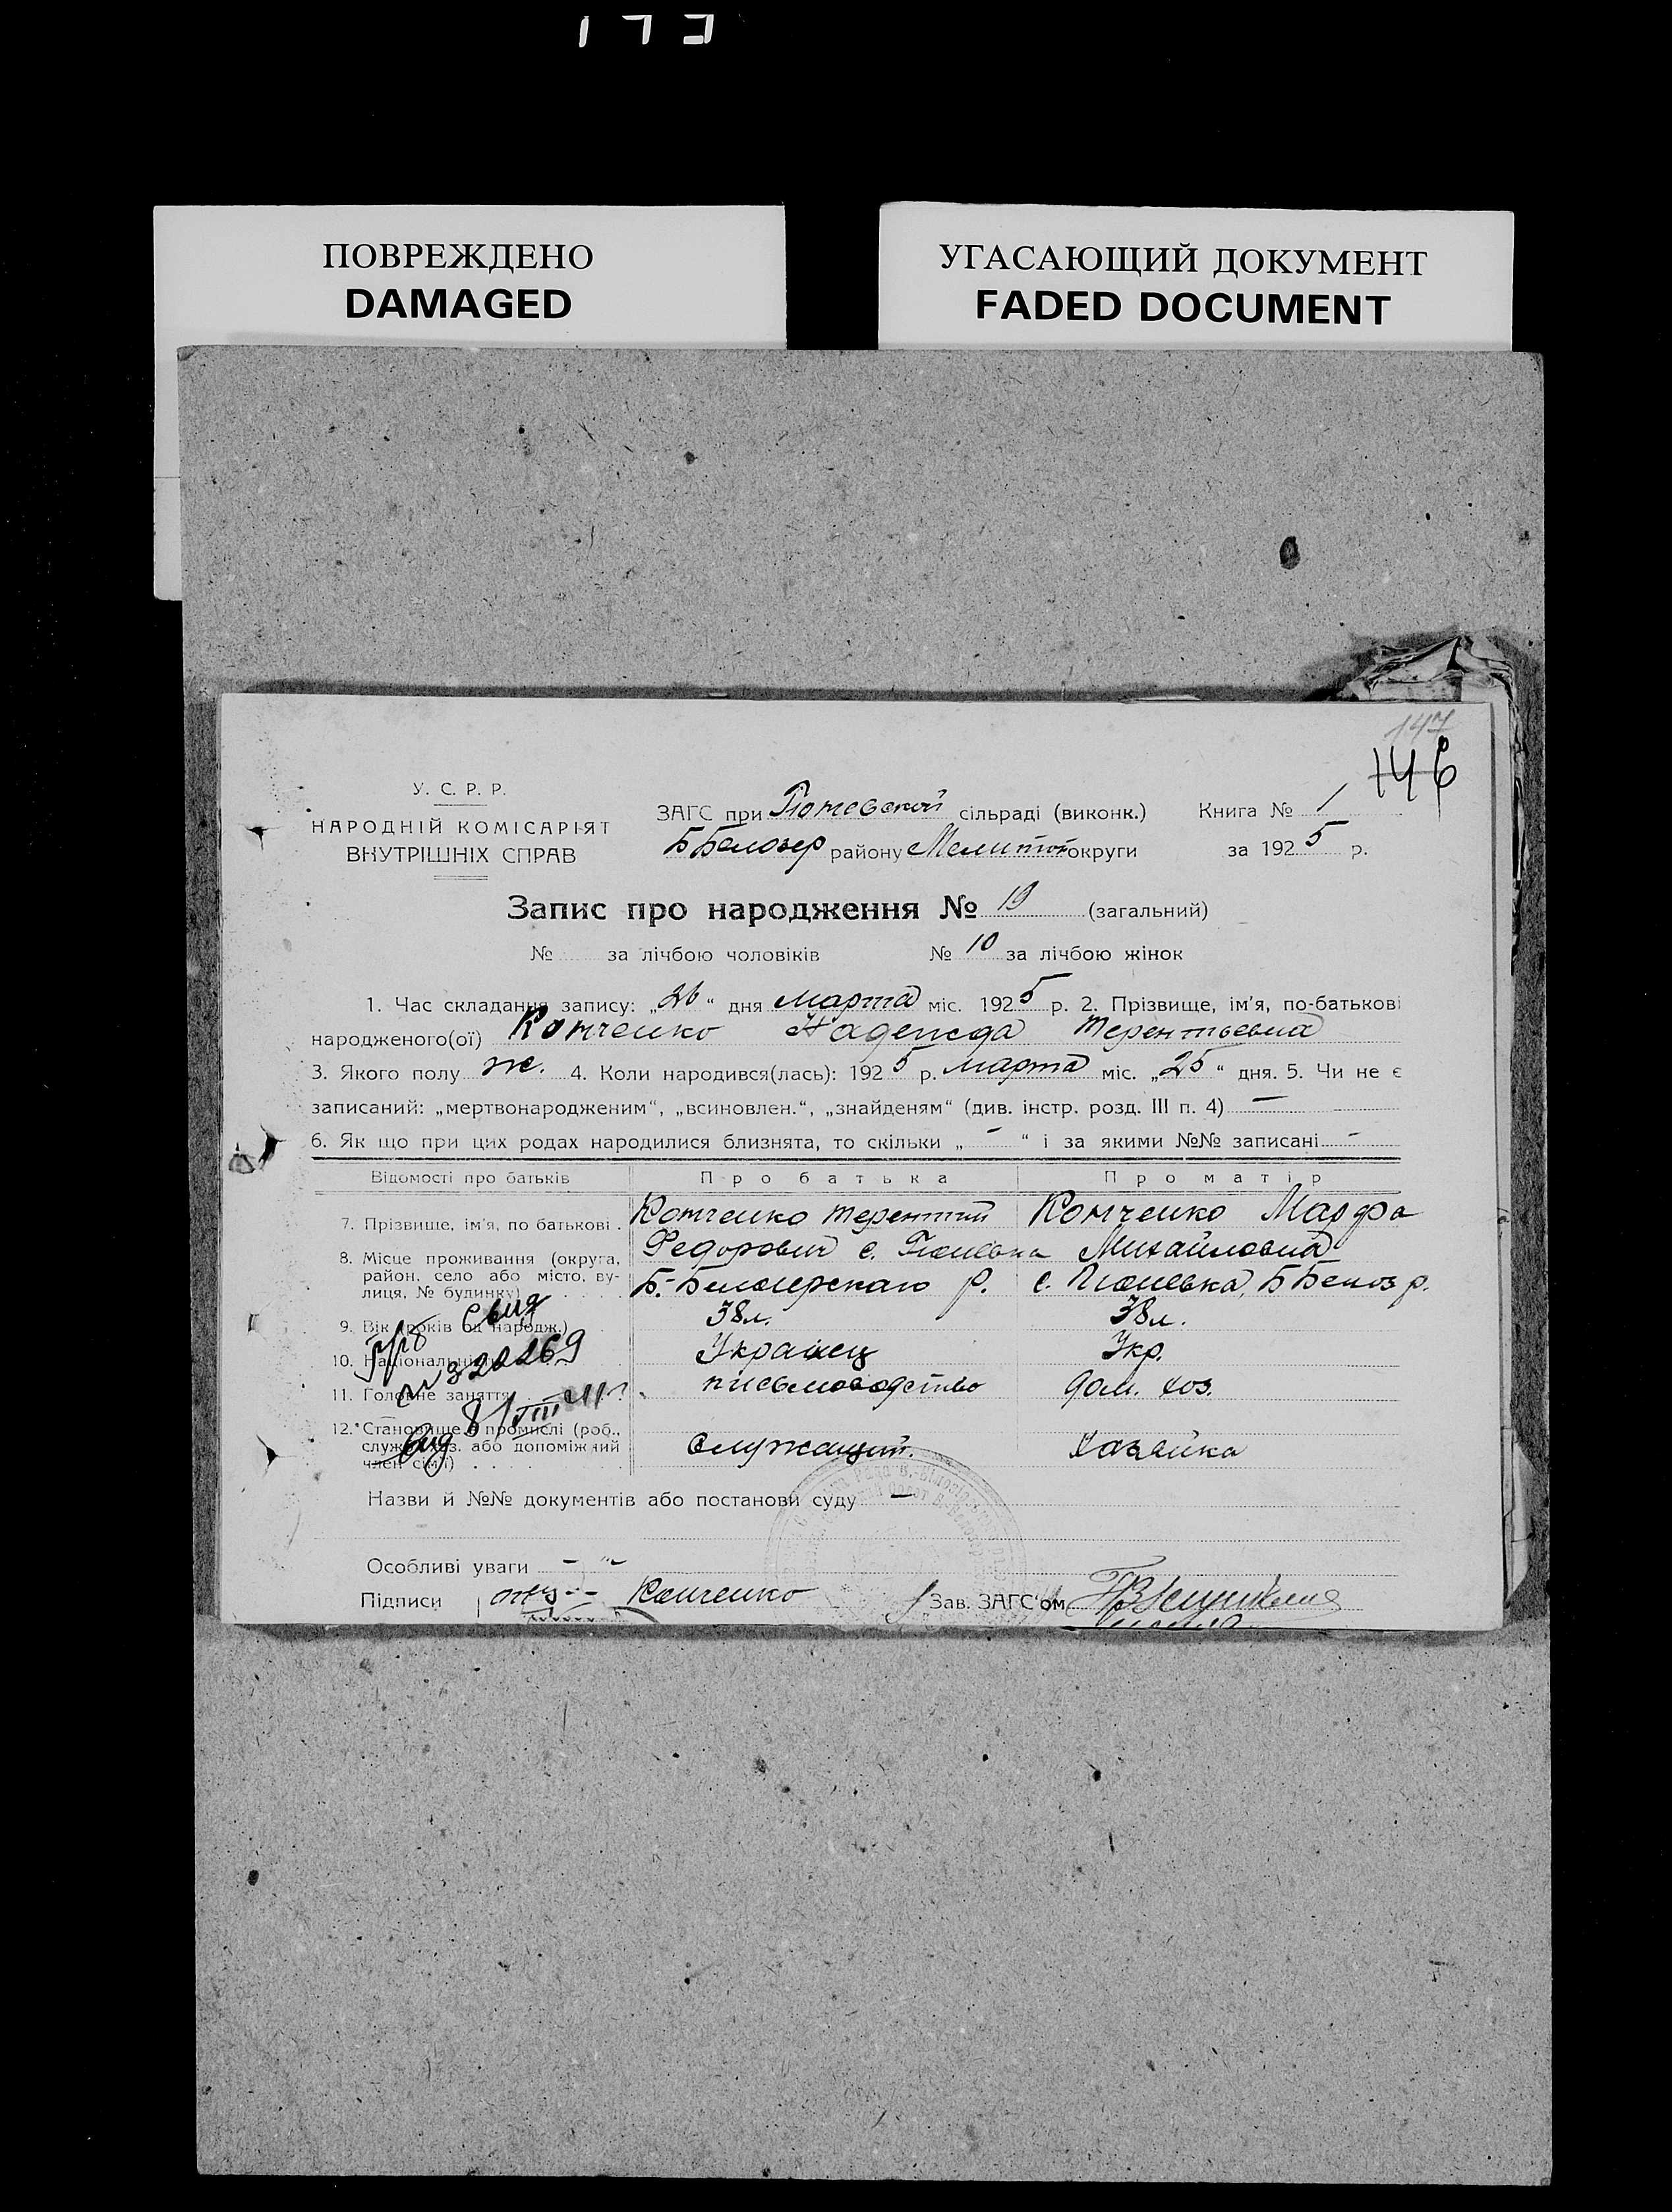 173
ПОВРЕЖДЕНО
DAMAGED
УГАСАЮЩИЙ ДОКУМЕНТ
FADED DOCUMENT
147
146
У. С. Р. Р.
НАРОДНІЙ КОМІСАРІЯТ
ВНУТРІШНІХ СПРАВ
ЗАГС при сільраді (виконк.) Книга № 1
Ббелозер району Мелитоп округи за 1925 р.
Запис про народження № 19 (загальний)
№ за лічбою чоловіків № 10 за лічбою жінок
1. Час складання запису: „26“ дня марта міс. 1925 р. 2. Прізвище, ім'я, по-батькові
народженого(ої) Надежда Терентьевна
3. Якого полу ж. 4. Коли народився(лась): 1925 р. марта міс. „25“ дня. 5. Чи не є
записаний: „мертвонародженим“, „всиновлен.“, „знайденям“ (див. інстр. розд. III п. 4) —
6. Як що при цих родах народилися близнята, то скільки „ - “ і за якими №№ записані -
Відомості про батьків Про батька Про матір
7. Прізвище, ім'я, по батькові . Терентий Марфа
8. Місце проживання (округа, район, село або місто, вулиця, № будинку) Федорович с. Б.-Белозерскаго р. Михайловна с. ББелоз р.
9. Вік (років од народж.) 38 л. 38 л.
10. Національність Украинец Укр.
11. Головне заняття письмоводство дом. хоз.
12. Становище в промислі (роб., служ., хаз. або допоміжний член сім'ї) служащий. хазяйка
свид
№ 320269
8/VIII
вид
Назви й №№ документів або постанови суду —
Особливі уваги - "-
Підписи Зав. ЗАГС'ом